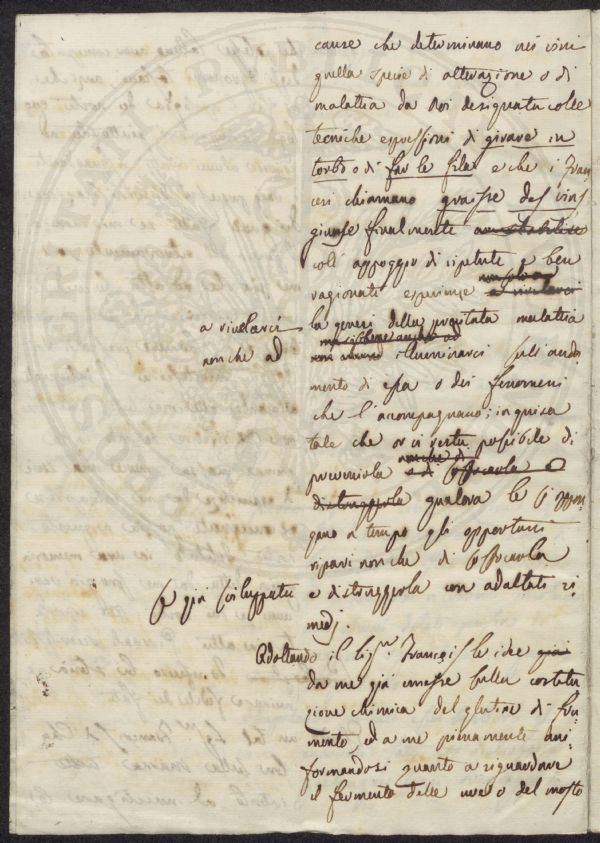 cause che determinano nei vini
quella specie di alterazione o di
malattia da Noi designata colle
tecniche espressioni di girare in
torbo o di far le fila e che i Fran
cesi chiamano graisse des vins
giunse finalmente
coll' appoggio di ripetute e ben
ragionate esperienze non solo a rivelarci
a rivelarci la genesi della precitata malattia
nonche ad
illuminarci sull' anda
mento di essa o dei fenomeni
che l'accompagnano; in guisa
tale che or ci resta possibile di
prevenirla nonche di o di soffocarla o
distruggerla qualora le si oppon
gano a tempo gli opportuni
ripari nonche di soffocarla
se già sviluppata e distruggerla con adattati ri
medj.
Adottando il Sig.r François le idee già
da me già emesse sulla costitu
zione chimica del glutine di fru
mento, ed a me pienamente uni
formandosi quanto a riguardare
il fermento delle uve o del mosto